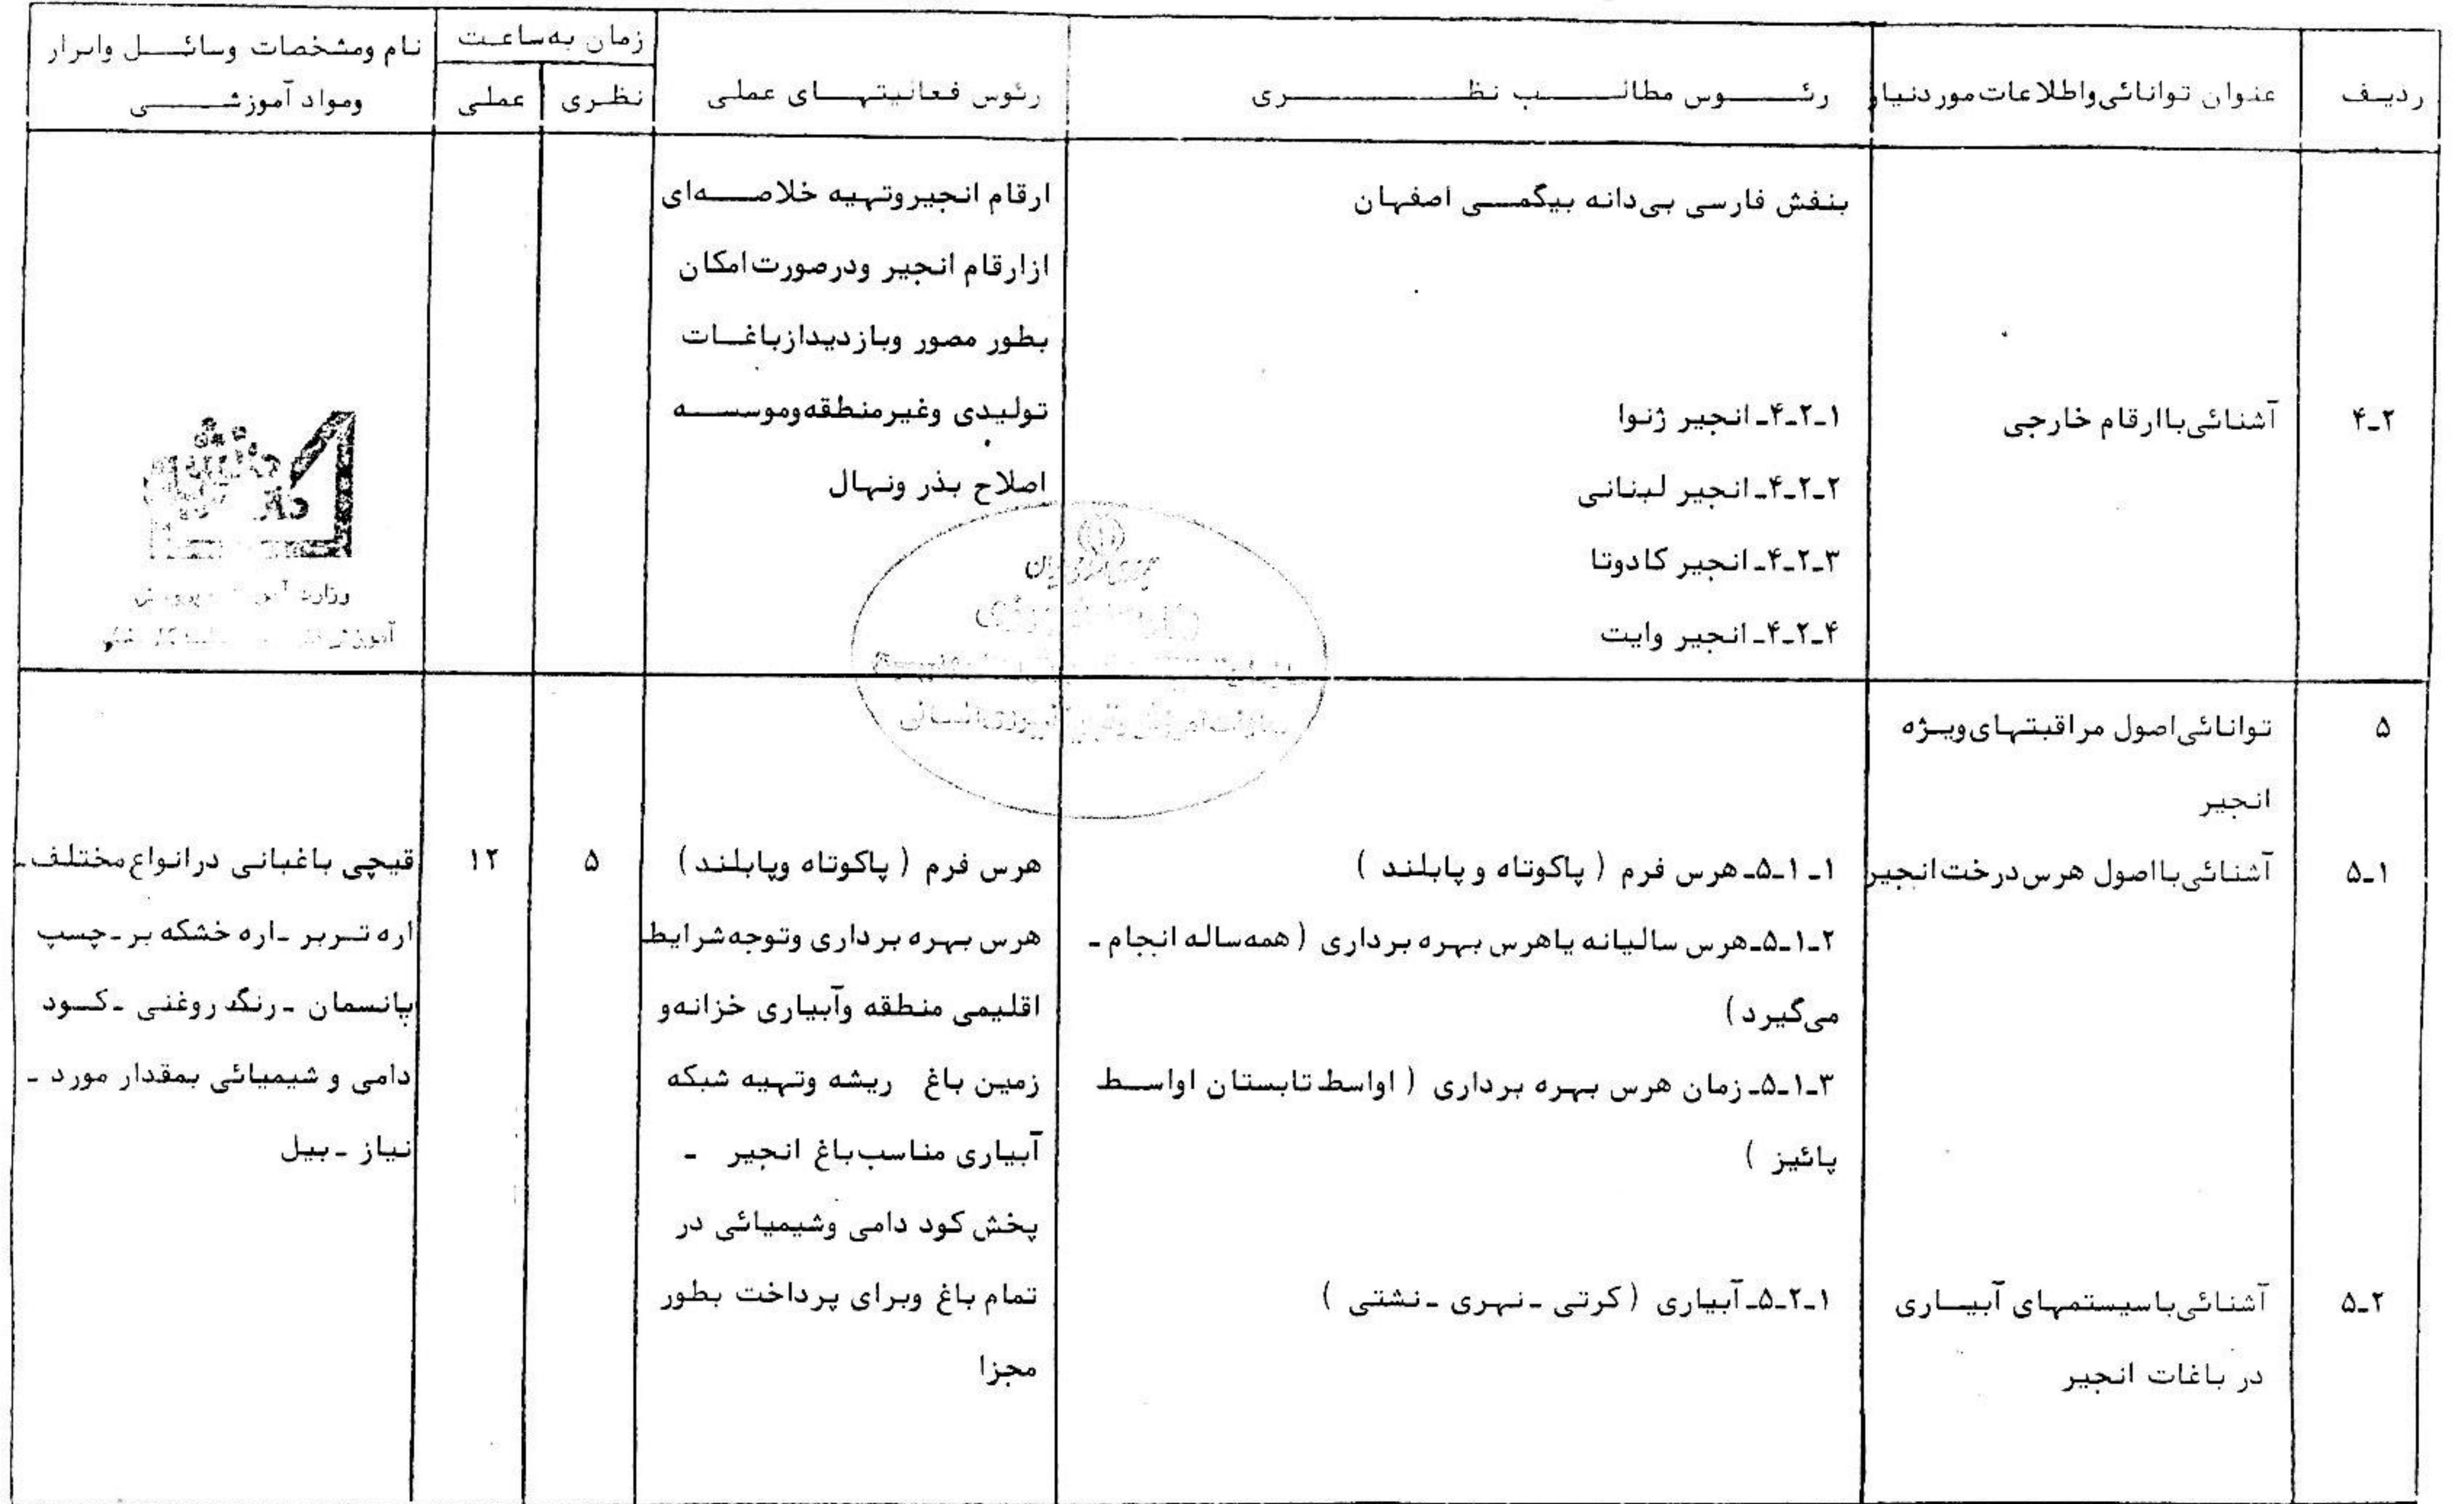 ردیف
عنوان توانائی واطلاعات موردنیاز
رئوس مطالب نظری
رئوس فعالیتهای عملی
زمان به ساعت
نظری
عملی
نام ومشخصات وسائل وابزار
ومواد آموزشی
بنفش فارسی بی‌دانه بیگمی اصفهان
ارقام انجیروتهیه خلاصه‌ای
ازارقام انجیر ودرصورت امکان
بطور مصور وبازدیدازباغات
تولیدی وغیرمنطقه وموسسه
اصلاح بذر ونهال
۴ـ۲
آشنائی باارقام خارجی
۴ـ۲ـ۱ـ انجیر ژنوا
۴ـ۲ـ۲ـ انجیر لبنانی
۴ـ۲ـ۳ـ انجیر کادوتا
۴ـ۲ـ۴ـ انجیر وایت
۵
توانائی اصول مراقبتهای ویژه
انجیر
۵ـ۱
آشنائی بااصول هرس درخت انجیر
۵ـ۱ـ۱ـ هرس فرم ( پاکوتاه و پابلند )
۵ـ۱ـ۲ـ هرس سالیانه یاهرس بهره برداری ( همه‌ساله انجام ـ
می‌گیرد )
۵ـ۱ـ۳ـ زمان هرس بهره برداری ( اواسط تابستان اواسط
پائیز )
هرس فرم ( پاکوتاه وپابلند )
هرس بهره برداری وتوجه شرایط
اقلیمی منطقه وآبیاری خزانه و
زمین باغ ریشه وتهیه شبکه
آبیاری مناسب باغ انجیر ـ
پخش کود دامی وشیمیائی در
تمام باغ وبرای پرداخت بطور
مجزا
۵
۱۲
قیچی باغبانی درانواع مختلف ـ
اره تربر ـ اره خشکه بر ـ چسب
پانسمان ـ رنگ روغنی ـ کود
دامی و شیمیائی بمقدار مورد ـ
نیاز ـ بیل
۵ـ۲
آشنائی باسیستمهای آبیاری
در باغات انجیر
۵ـ۲ـ۱ـ آبیاری ( کرتی ـ نهری ـ نشتی )